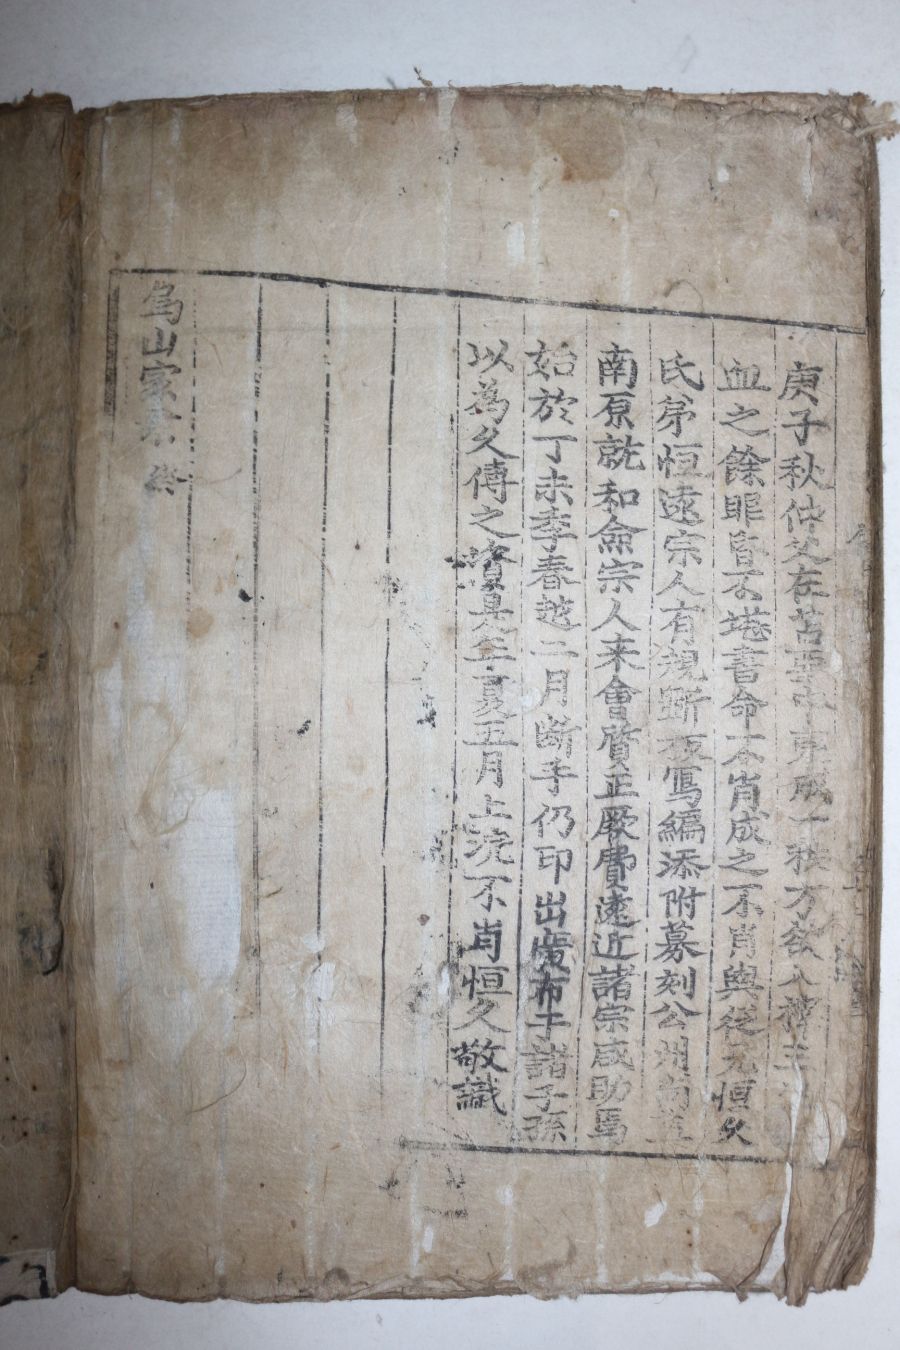 庚子秋仲父在苫堊中東成一秩方欲入榟
血之餘眼昏不堪書命不肖成之不肖與從兄恒久
氏弟恒遠宗人有規斯 寫編添附募刻公州
南原就和僉宗人来會質正厥費遠近諸宗咸助焉
始於丁未季春越二月斷手仍印出廣布于諸子孫
以為久傳之資是年夏五月上浣不肖恒久敬識
烏山家 終